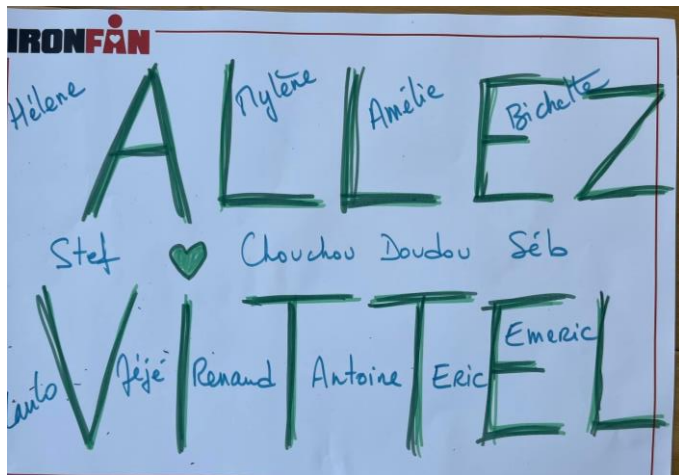 IRONFAN
Hélene Mylène Amélie Bichette
ALLEZ
Stef Chouchou Doudou Séb
VITTEL
Jéjé Renaud Antoine Eric Emeric